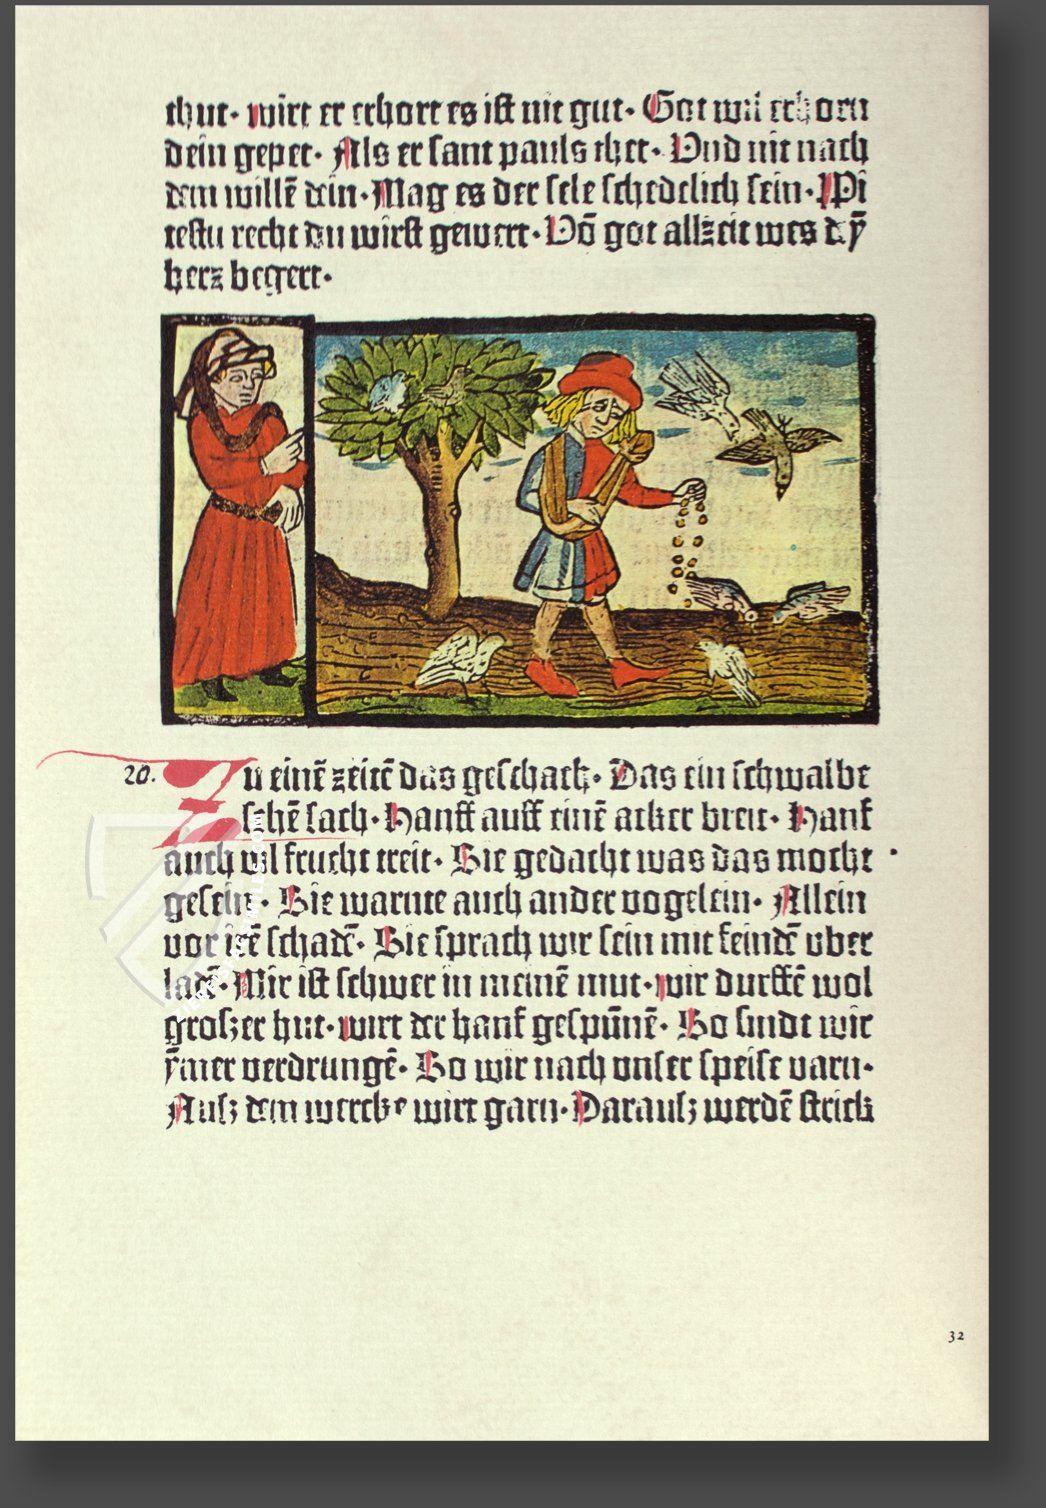 thut· wirt er erhort es ist nit gut· Got wil erhorn
dein gepet· Als er sant pauls thet· Vnd nit nach
dem willē dein· Mag es der sele schedelich sein· Pi
testu recht du wirst gewert· Vō got allzeit wes dȳ
herz begert·
20. Zu einē zeitē das geschach· Das ein schwalbe
sehē sach· Hanff auff einē acker breit· Hanf
auch vil frucht treit· Sie gedacht was das mocht
gesein· Sie warnte auch ander vogelein· Allein
vor irē schadē· Sie sprach wir sein mit feindē vber
ladē· Mir ist schwer in meinē mut· wir durffē wol
groszer hut· wirt der hanf gespūnē· So sindt wir
ȳmer verdrungē· So wir nach vnser speise varn·
Ausz dem wercke wirt garn· Darausz werdē strick
32